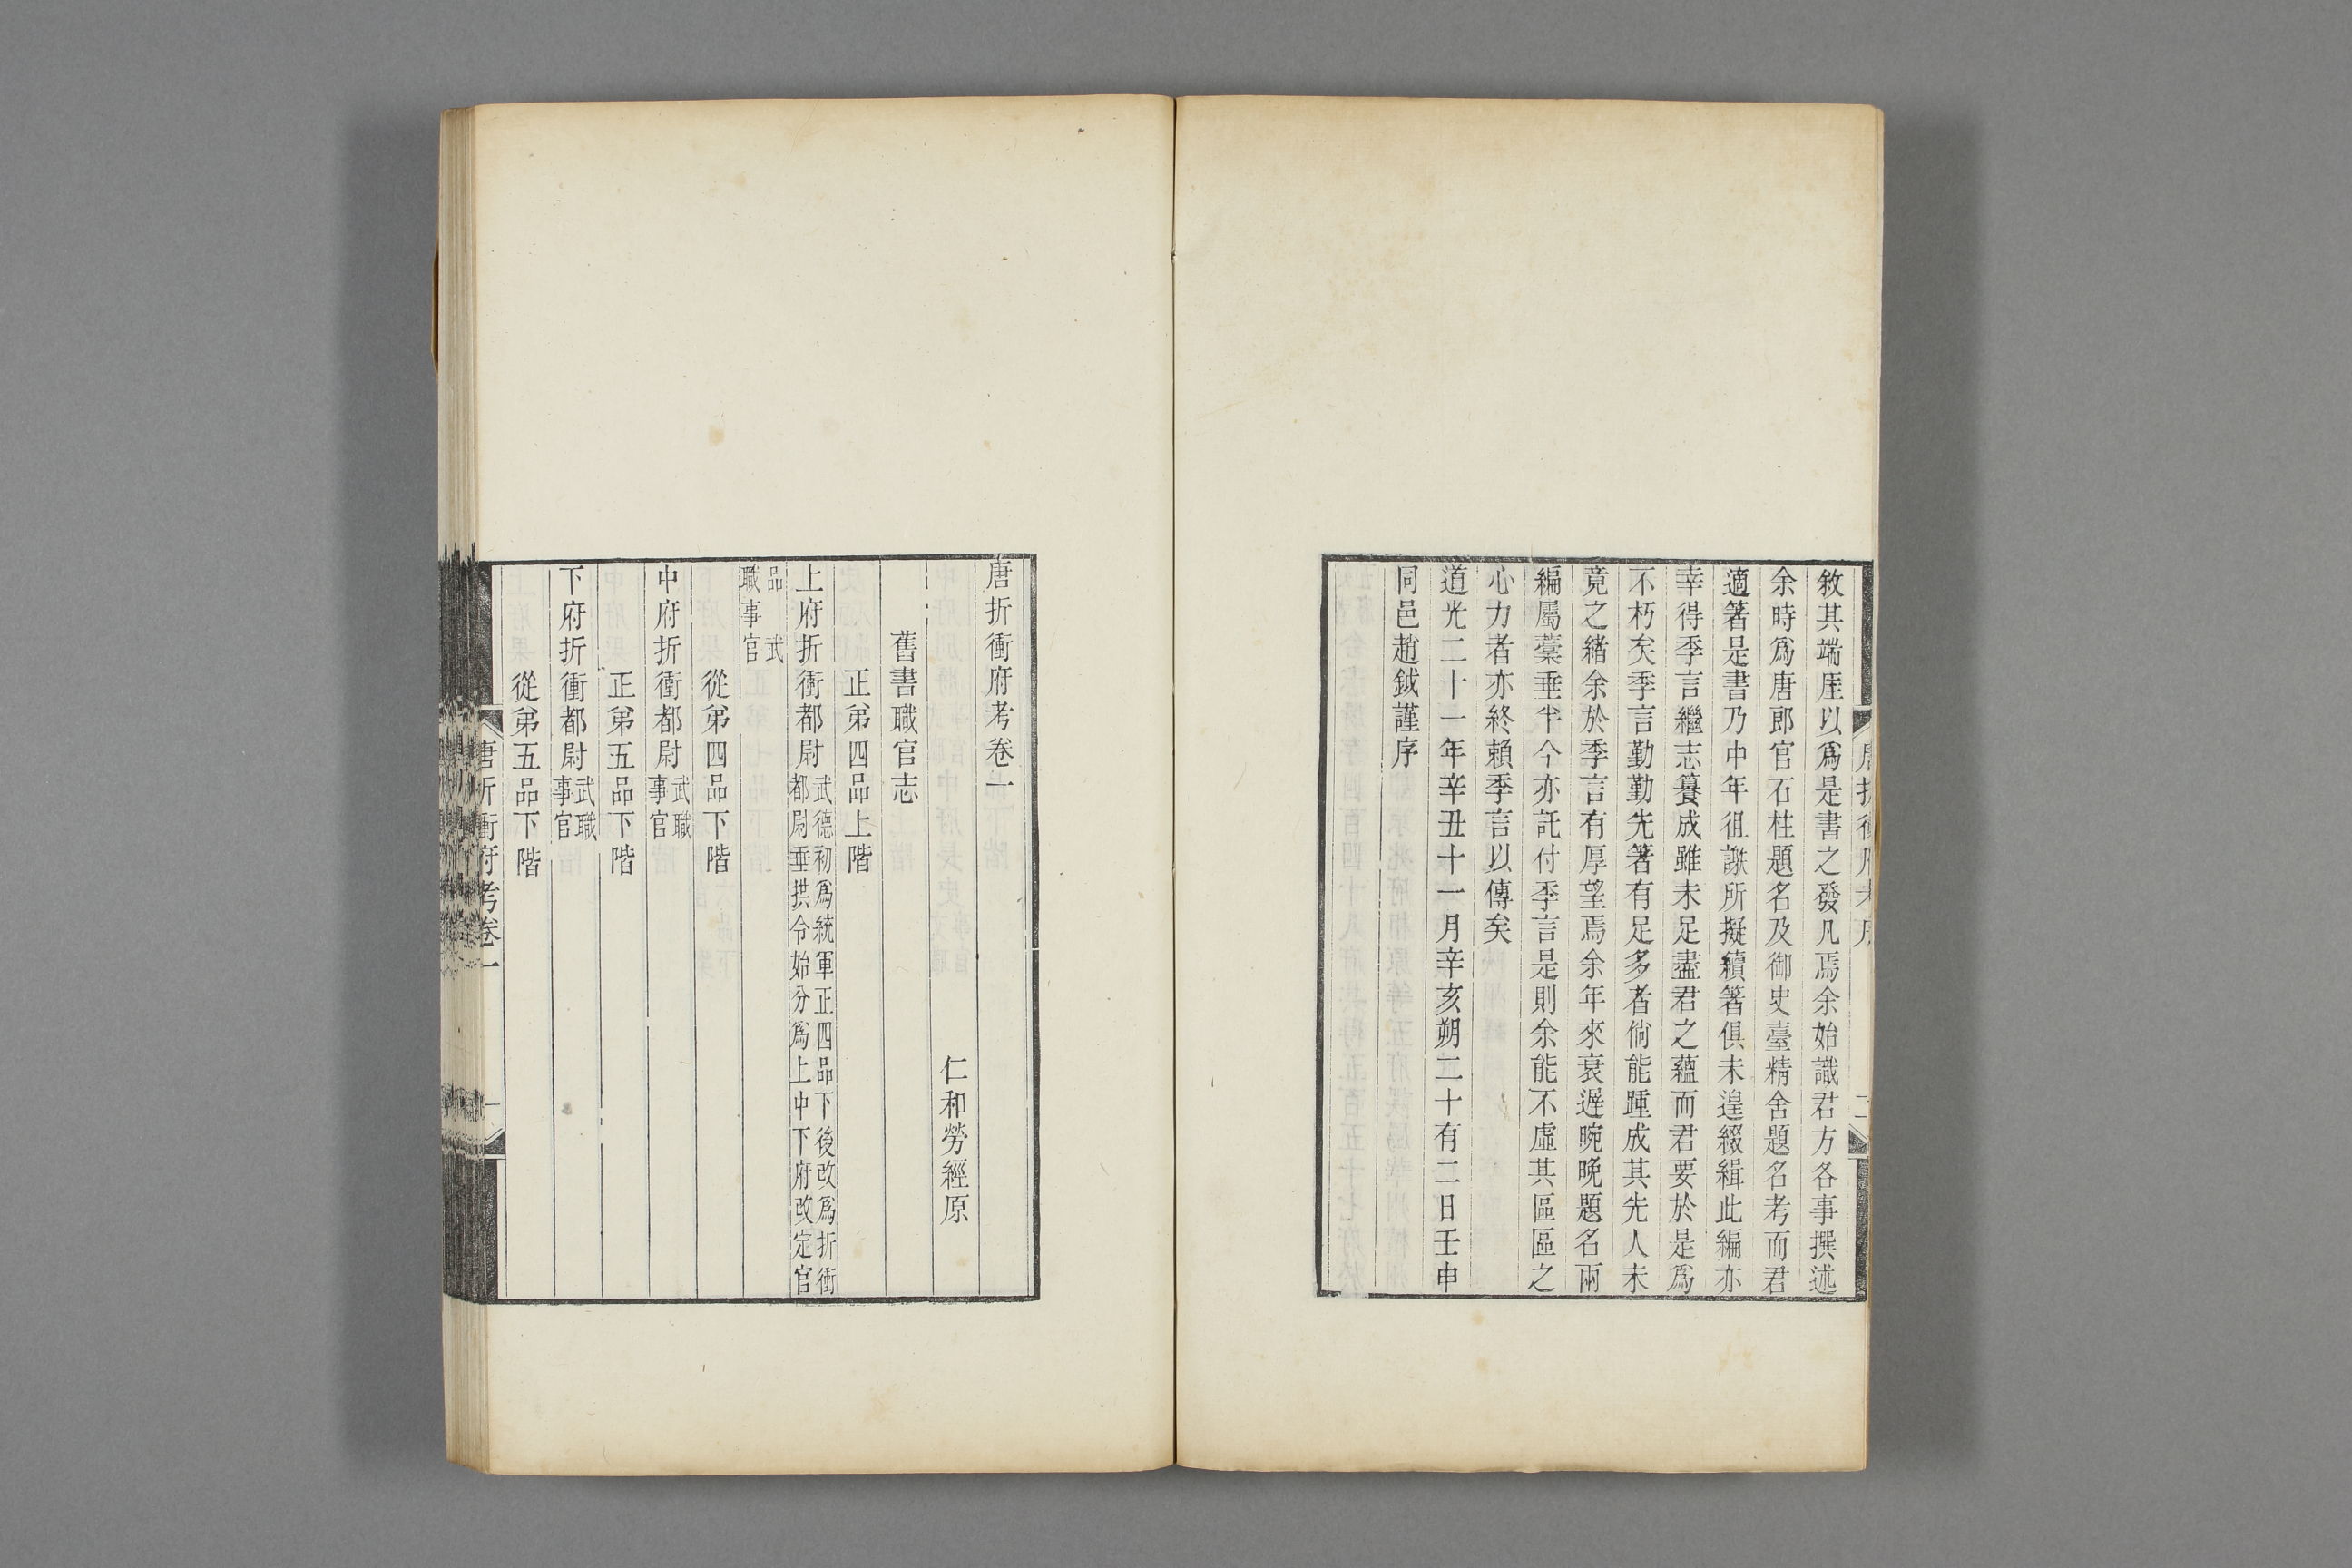 敘其端厓以爲是書之發凡焉余始識君方各事撰述
余時爲唐郎官石柱題名及御史臺精舍題名考而君
適箸是書乃中年徂謝所擬續箸俱未遑綴緝此編亦
幸得季言繼志籑成雖未足盡君之蘊而君要於是爲
不朽矣季言勤勤先箸有足多者倘能踵成其先人未
竟之緒余於季言有厚望焉余年來衰遲晼晚題名兩
編屬藳垂半今亦託付季言是則余能不虛其區區之
心力者亦終賴季言以傳矣
道光二十一年辛丑十一月辛亥朔二十有二日壬申
同邑趙鉞謹序
唐折衝府考卷一
仁和勞經原
舊書職官志
正弟四品上階
上府折衝都尉武德初爲統軍正四品下後改爲折衝
都尉垂拱令始分爲上中下府改定官
品武
職事官
從弟四品下階
中府折衝都尉武職
事官
正弟五品下階
下府折衝都尉武職
事官
從弟五品下階
唐折衝府考卷一
一